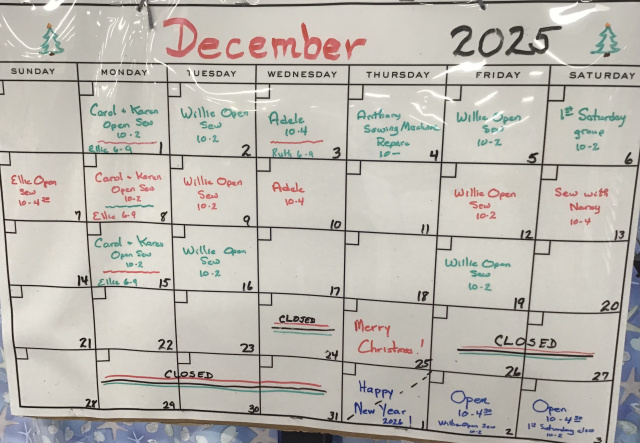 December 2025
SUNDAY MONDAY TUESDAY WEDNESDAY THURSDAY FRIDAY SATURDAY
Carol + Karen
Open Sew
10-2
Ellie 6-9
1
Willie Open
Sew
10-2
2
Adele
10-4
Ruth 6-9
3
Anthony
Sewing Machine
Repairs
10-
4
Willie Open
Sew
10-2
5
1st Saturday
group
10-2
6
Ellie Open
Sew
10-4
7
Carol + Karen
Open Sew
10-2
Ellie 6-9
8
Willie Open
Sew
10-2
9
Adele
10-4
10
11
Willie Open
Sew
10-2
12
Sew with
Nancy
10-4
13
14
Carol + Karen
Open Sew
10-2
Ellie 6-9
15
Willie Open
Sew
10-2
16
17
18
Willie Open
Sew
10-2
19
20
21
22
23
CLOSED
24
Merry
Christmas!
25
CLOSED
26
27
28
CLOSED
29
30
31
Happy
New Year
2026!
1
Open
10-4
Willie Open Sew
10-2
2
Open
10-4
1st Saturday class
10-2
3